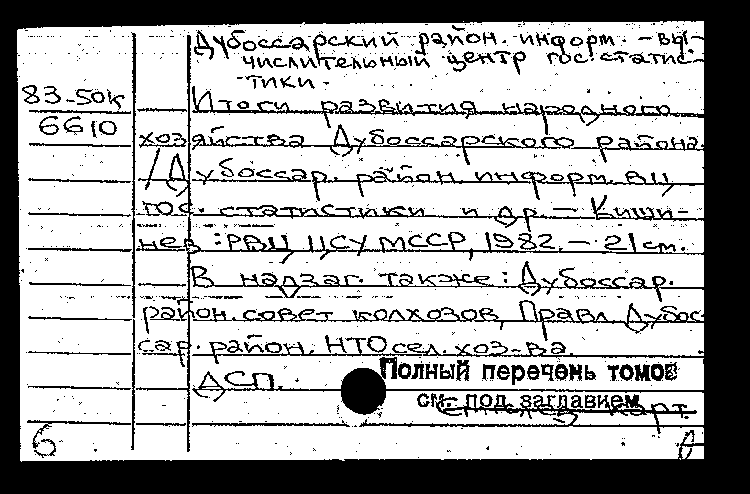 Дубоссарский район. информ. - вы-
числительный центр гос. статис-
тики.
83-50к
Итоги развития народного
6610
хозяйства Дубоссарского района.
/Дубоссар. район. информ. ВЦ
гос. статистики и др. - Киши-
нев: РВЦ ЦСУ МССР, 1982. - 21 см.
В надзаг. также: Дубоссар.
район. совет колхозов, Правл. Дубос-
сар. район. НТО сел. хоз-ва.
ДСП.
Полный перечень томов
см. под заглавием
карт.
6